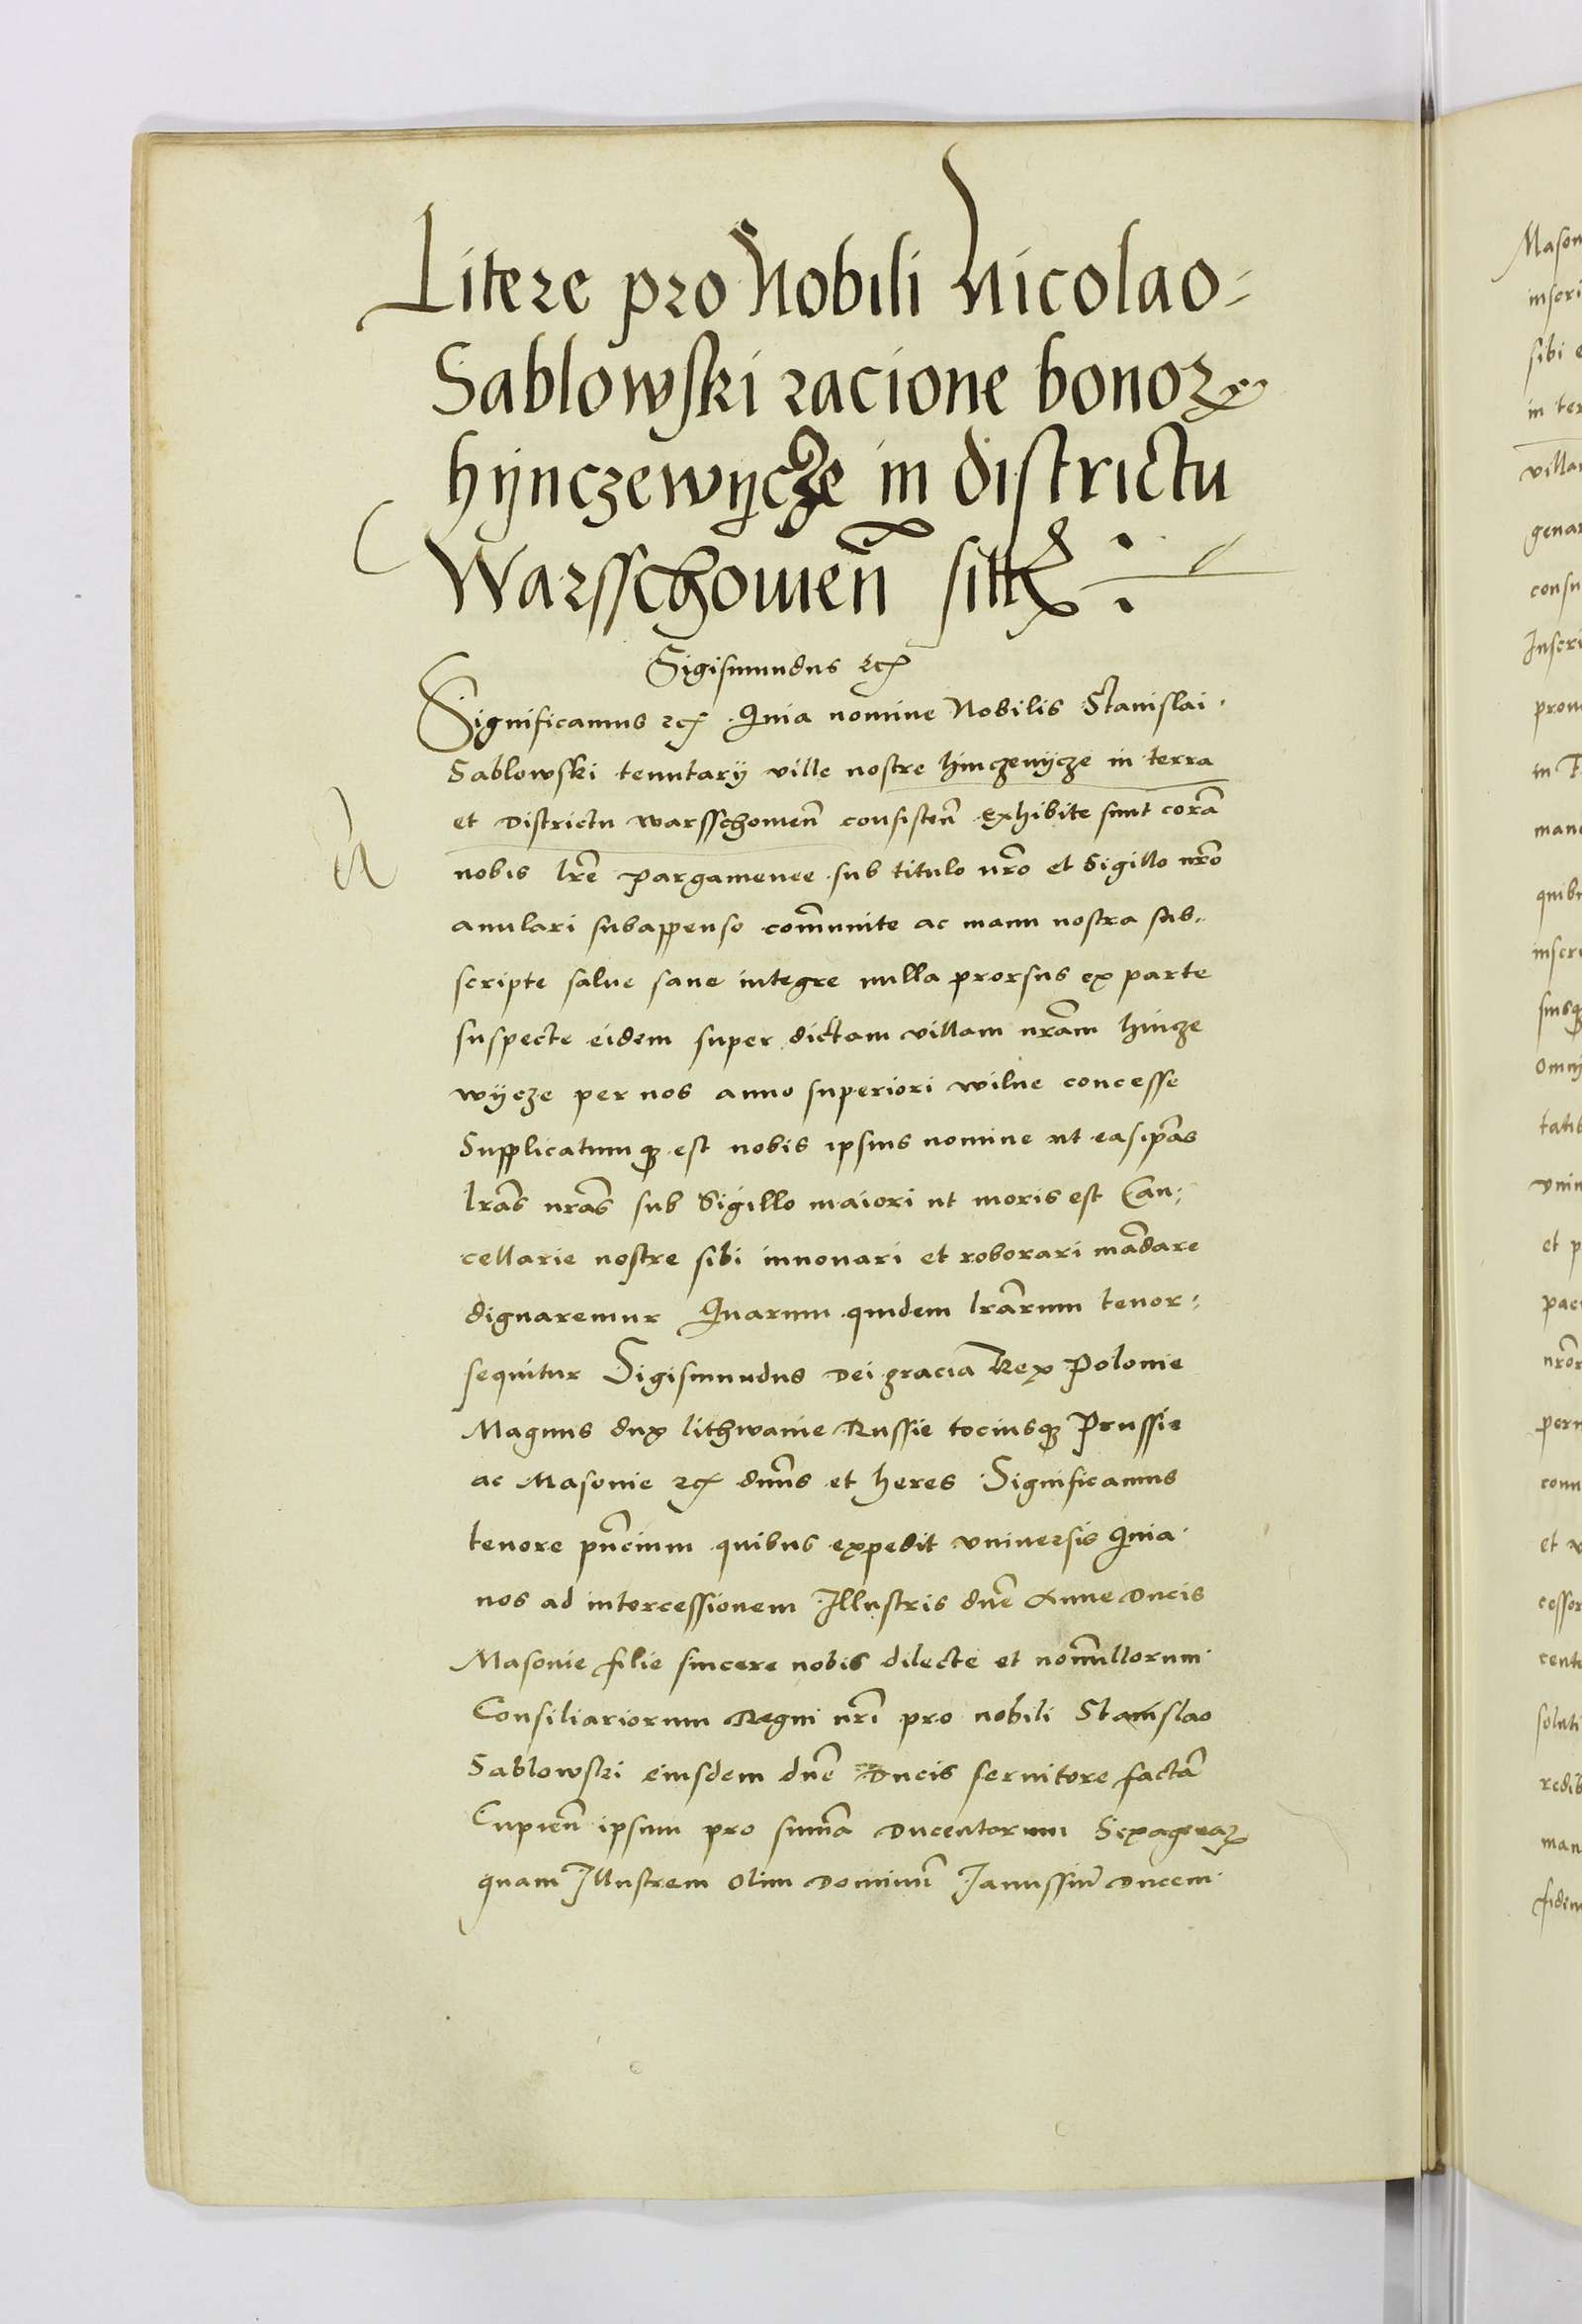 Litere pro Nobili Nicolao-
Sablowski racione bonoꝝ
hÿnczewÿcze in districtu
Warsschouien̄ sitt
Sigismundus ꝛc
Significamus ꝛc Quia nomine Nobilis Stanislai
Sablowski tenutarÿ ville nostre hinczewÿcze in terra
et Districtu warsschouien̄ consisten̄ Exhibite sunt corā
nobis lr̄e pargamenee sub titulo nr̄o et Sigillo nr̄o
anulari subappenso com̄unite ac manu nostra sub-
scripte salue sane integre nulla prorsus ex parte
suspecte eidem super dictam villam nr̄am hincze
wÿcze per nos anno superiori wilne concesse
Supplicatumqꝫ est nobis ipsius nomine ut eas ip̄as
lr̄as nr̄as sub Sigillo maiori ut moris est Can-
cellarie nostre sibi innouari et roborari mādare
dignaremur Quarum quidem lr̄arum tenor
sequitur Sigismundus Dei gracia Rex Polonie
Magnus dux lithwanie Russie tociusqꝫ Prussie
ac Masouie ꝛc dn̄us et heres Significamus
tenore pn̄cium quibus expedit vniuersis Quia
nos ad intercessionem Illustris dn̄e Anne Ducis
Masouie filie sincere nobis dilecte et non̄ullorum
Consiliariorum Regni nr̄i pro nobili Stanislao
Sablowski eiusdem dn̄e Ducis seruitore factā
Cupien̄ ipsum pro sum̄a Ducentorum Sexagenaꝝ
quam Illustrem olim Dominū Janussiū Ducem
Mason
inscri
sibi e
in ter
villa
genar
consu
Inscri
prou
in
man
quib
inscri
omni
tatib
vniu
et p
pac
nr̄or
per
conu
et v
cessor
cent
soluti
redib
man
fidem